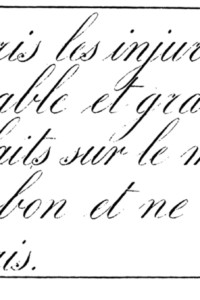 ris les injur
able et gra
aits sur le m
bon et ne
ais.